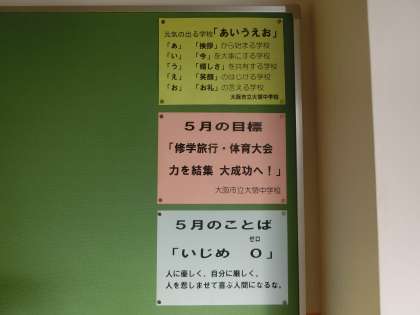 元気の出る学校「あいうえお」
「あ」 「挨拶」から始まる学校
「い」 「今」を大事にする学校
「う」 「嬉しさ」を共有する学校
「え」 「笑顔」のはじける学校
「お」 「お礼」の言える学校
大阪市立大領中学校
５月の目標
「修学旅行・体育大会
力を結集 大成功へ！」
大阪市立大領中学校
５月のことば
ゼロ
「いじめ ０」
人に優しく、自分に厳しく、
人を悲しませて喜ぶ人間になるな。